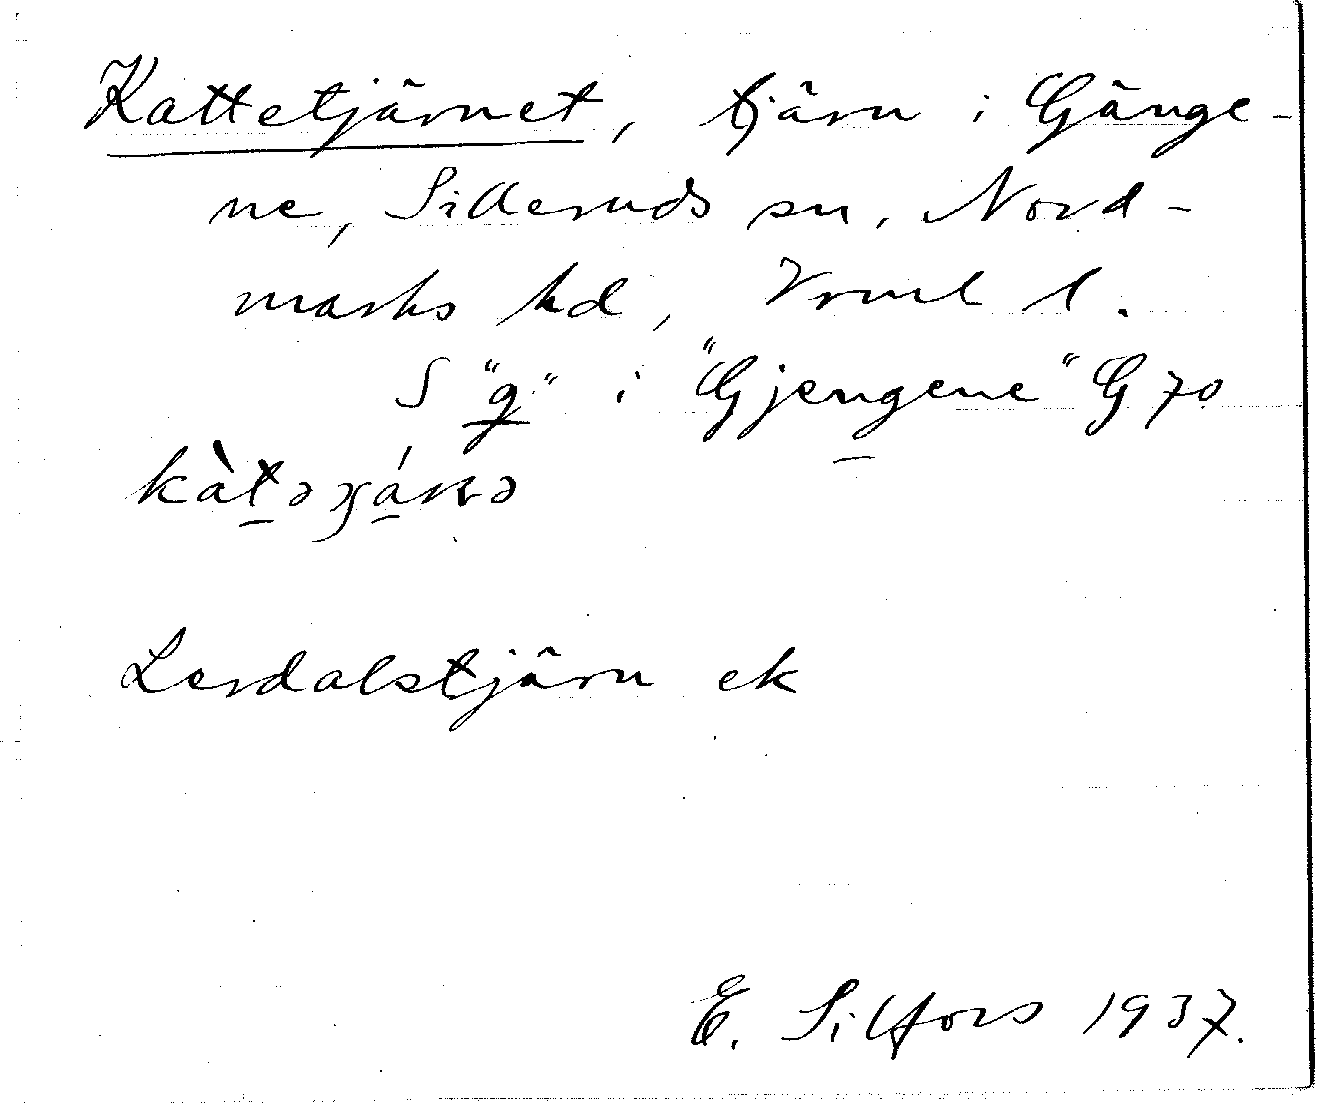 Kattetjärnet, tjärn i Gänge-
ne, Silleruds sn, Nord-
marks hd, Vrml l.
S "g" i "Gjengene" G 70
kàt̠ə
Lerdalstjärn ek
E. Silfors 1937.